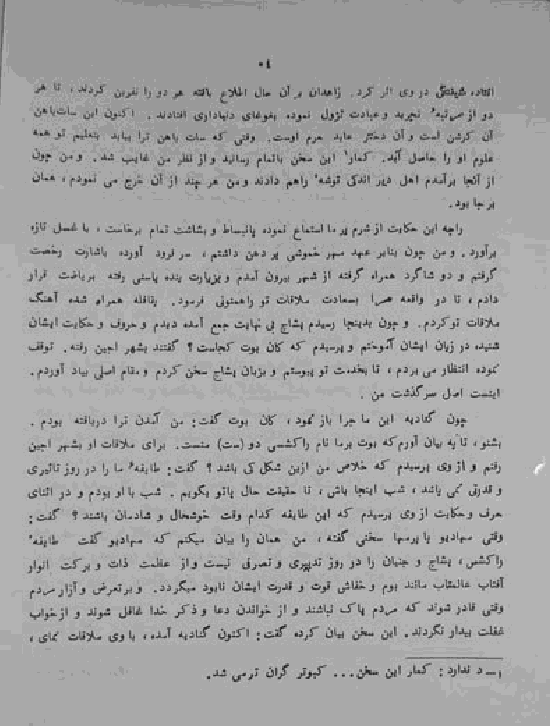 ۰٤
افتاد، شیفتگی در وی اثر کرد. زاهدان بر آن حال اطلاع یافته هر دو را نفرین کردند، تا هر
دو از مرتبهٔ تجرید و عبادت نزول نموده بغوغای دنیاداری افتادند. اکنون این سات‌باهن
آن کرشن است و آن دختر عابد حرم اوست. وقتی که سات باهن ترا بیابد بتعلیم تو همه
علوم او را حاصل آید. کمار' این سخن باتمام رسانید و از نظر من غایب شد. و من چون
از آنجا برآمدم اهل دیر اندکی توشه' راهم دادند و من هر چند از آن خرج می نمودم، همان
بر جا بود.
راجه این حکایت از شرم بر ما استماع نموده بانبساط و بشاشت تمام برخاست، با غسل تازه
برآورد. و من چون بنابر عهد مهر خموشی بر دهن داشتم، سر فرود آورده باشارت رخصت
گرفتم و دو شاگرد همراه گرفته از شهر بیرون آمدم و بزیارت بنده باسنی رفته بریاضت قرار
دادم، تا در واقعه مرا بسعادت ملاقات تو راهنمونی فرمود. بقافله همراه شده آهنگ
ملاقات تو کردم. و چون بدینجا رسیدم پشاچ بی نهایت جمع آمده دیدم و حروف و حکایت ایشان
شنیده در زبان ایشان آموختم و پرسیدم که کان بوت کجاست؟ گفتند بشهر اجین رفته. توقف
نموده انتظار می بردم، تا بخدمت تو پیوستم و بزبان پشاچ سخن کردم و مقام اصلی بیاد آوردم.
اینست اصل سرگذشت من.
چون گنادیه این ماجرا باز نمود، کان بوت گفت: من آمدن ترا دریافته بودم.
بشنو، تا به بیان آورم که بوت برما نام راکشسی دو (ست) منست. برای ملاقات او بشهر اجین
رفتم و از وی پرسیدم که خلاص من ازین شکل کی باشد؟ گفت: طایفه' ما را در روز تاثیری
و قدرتی نمی باشد، شب اینجا باش، تا حقیقت حال باتو بگویم. شب با او بودم و در اثنای
حرف و حکایت از وی پرسیدم که این طایفه کدام وقت خوشحال و شادمان باشند؟ گفت:
وقتی سهادیو با برمها سخنی گفته، من همان را بیان میکنم که سهادیو گفت طایفه'
راکشس، پشاچ و جنیان را در روز تدبیری و تصرفی نیست و از عظمت ذات و برکت انوار
آفتاب عالمتاب مانند بوم و خفاش قوت و قدرت ایشان نابود میگردد. و بر تعرض و آزار مردم
وقتی قادر شوند که مردم پاک نباشند و از خواندن دعا و ذکر خدا غافل شوند و از خواب
غفلت بیدار نگردند. این سخن بیان کرده گفت: اکنون گنادیه آمده، با وی ملاقات نمای،
۱ـ د ندارد: کمار این سخن... کبوتر گران تر می شد.